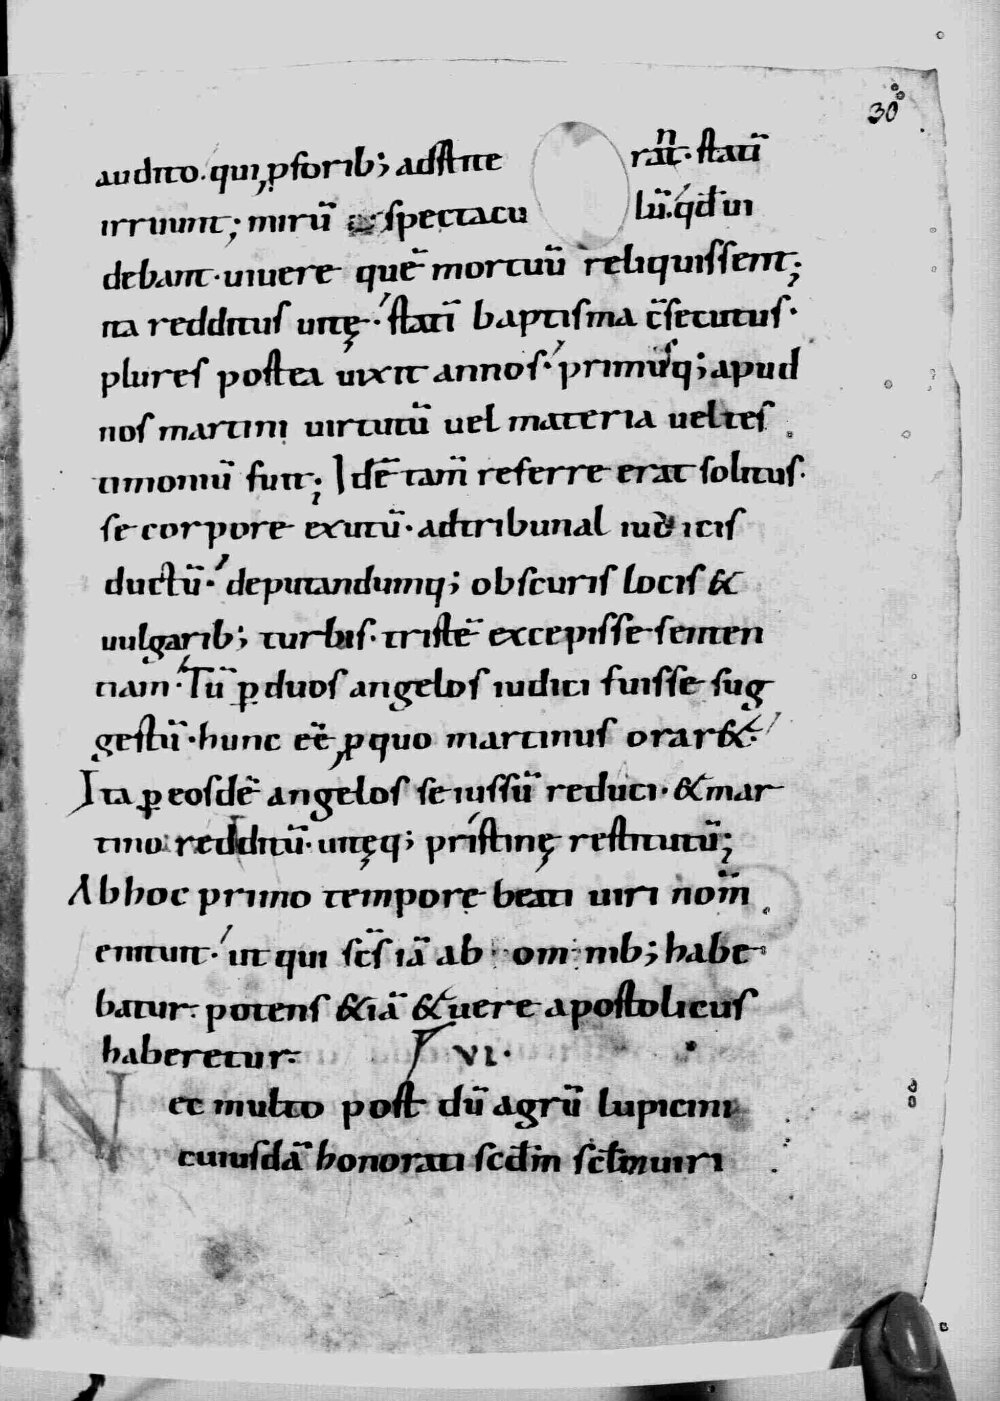 30
audito. qui ꝓforib; adstite rant. stati̅
irruunt; miru̅ spectacu lu̅. qđ ui
debant. uiuere que̅ mortuu̅ reliquissent;
ita redditus uitę. stati̅ baptisma c̅secutus.
plures postea uixit annos. primusq; apud
nos martini uirtutu̅ uel materia uel tes
timoniu̅ fuit; Ide̅ tam̅ referre erat solitus.
se corpore exutu̅. ad tribunal iudicis
ductu̅. deputandumq; obscuris locis &
uulgarib; turbis. triste̅ excepisse senten
tiam. Tu̅ ꝑ duos angelos iudici fuisse sug
gestu̅. hunc ee̅ ꝓ quo martinus orar&.
Ita ꝑ eosde̅ angelos se iussu̅ reduci. & mar
tino redditu̅. uitęq; pristinę restitutu̅;
Ab hoc primo tempore beati uiri nom̅
enituit. ut qui sc̅s ia̅ ab omnib; habe
batur. potens &ia̅ & uere apostolicus
haberetur. VI.
Nec multo post du̅ agru̅ lupicini
cuiusda̅ honorati scđm scłm uiri